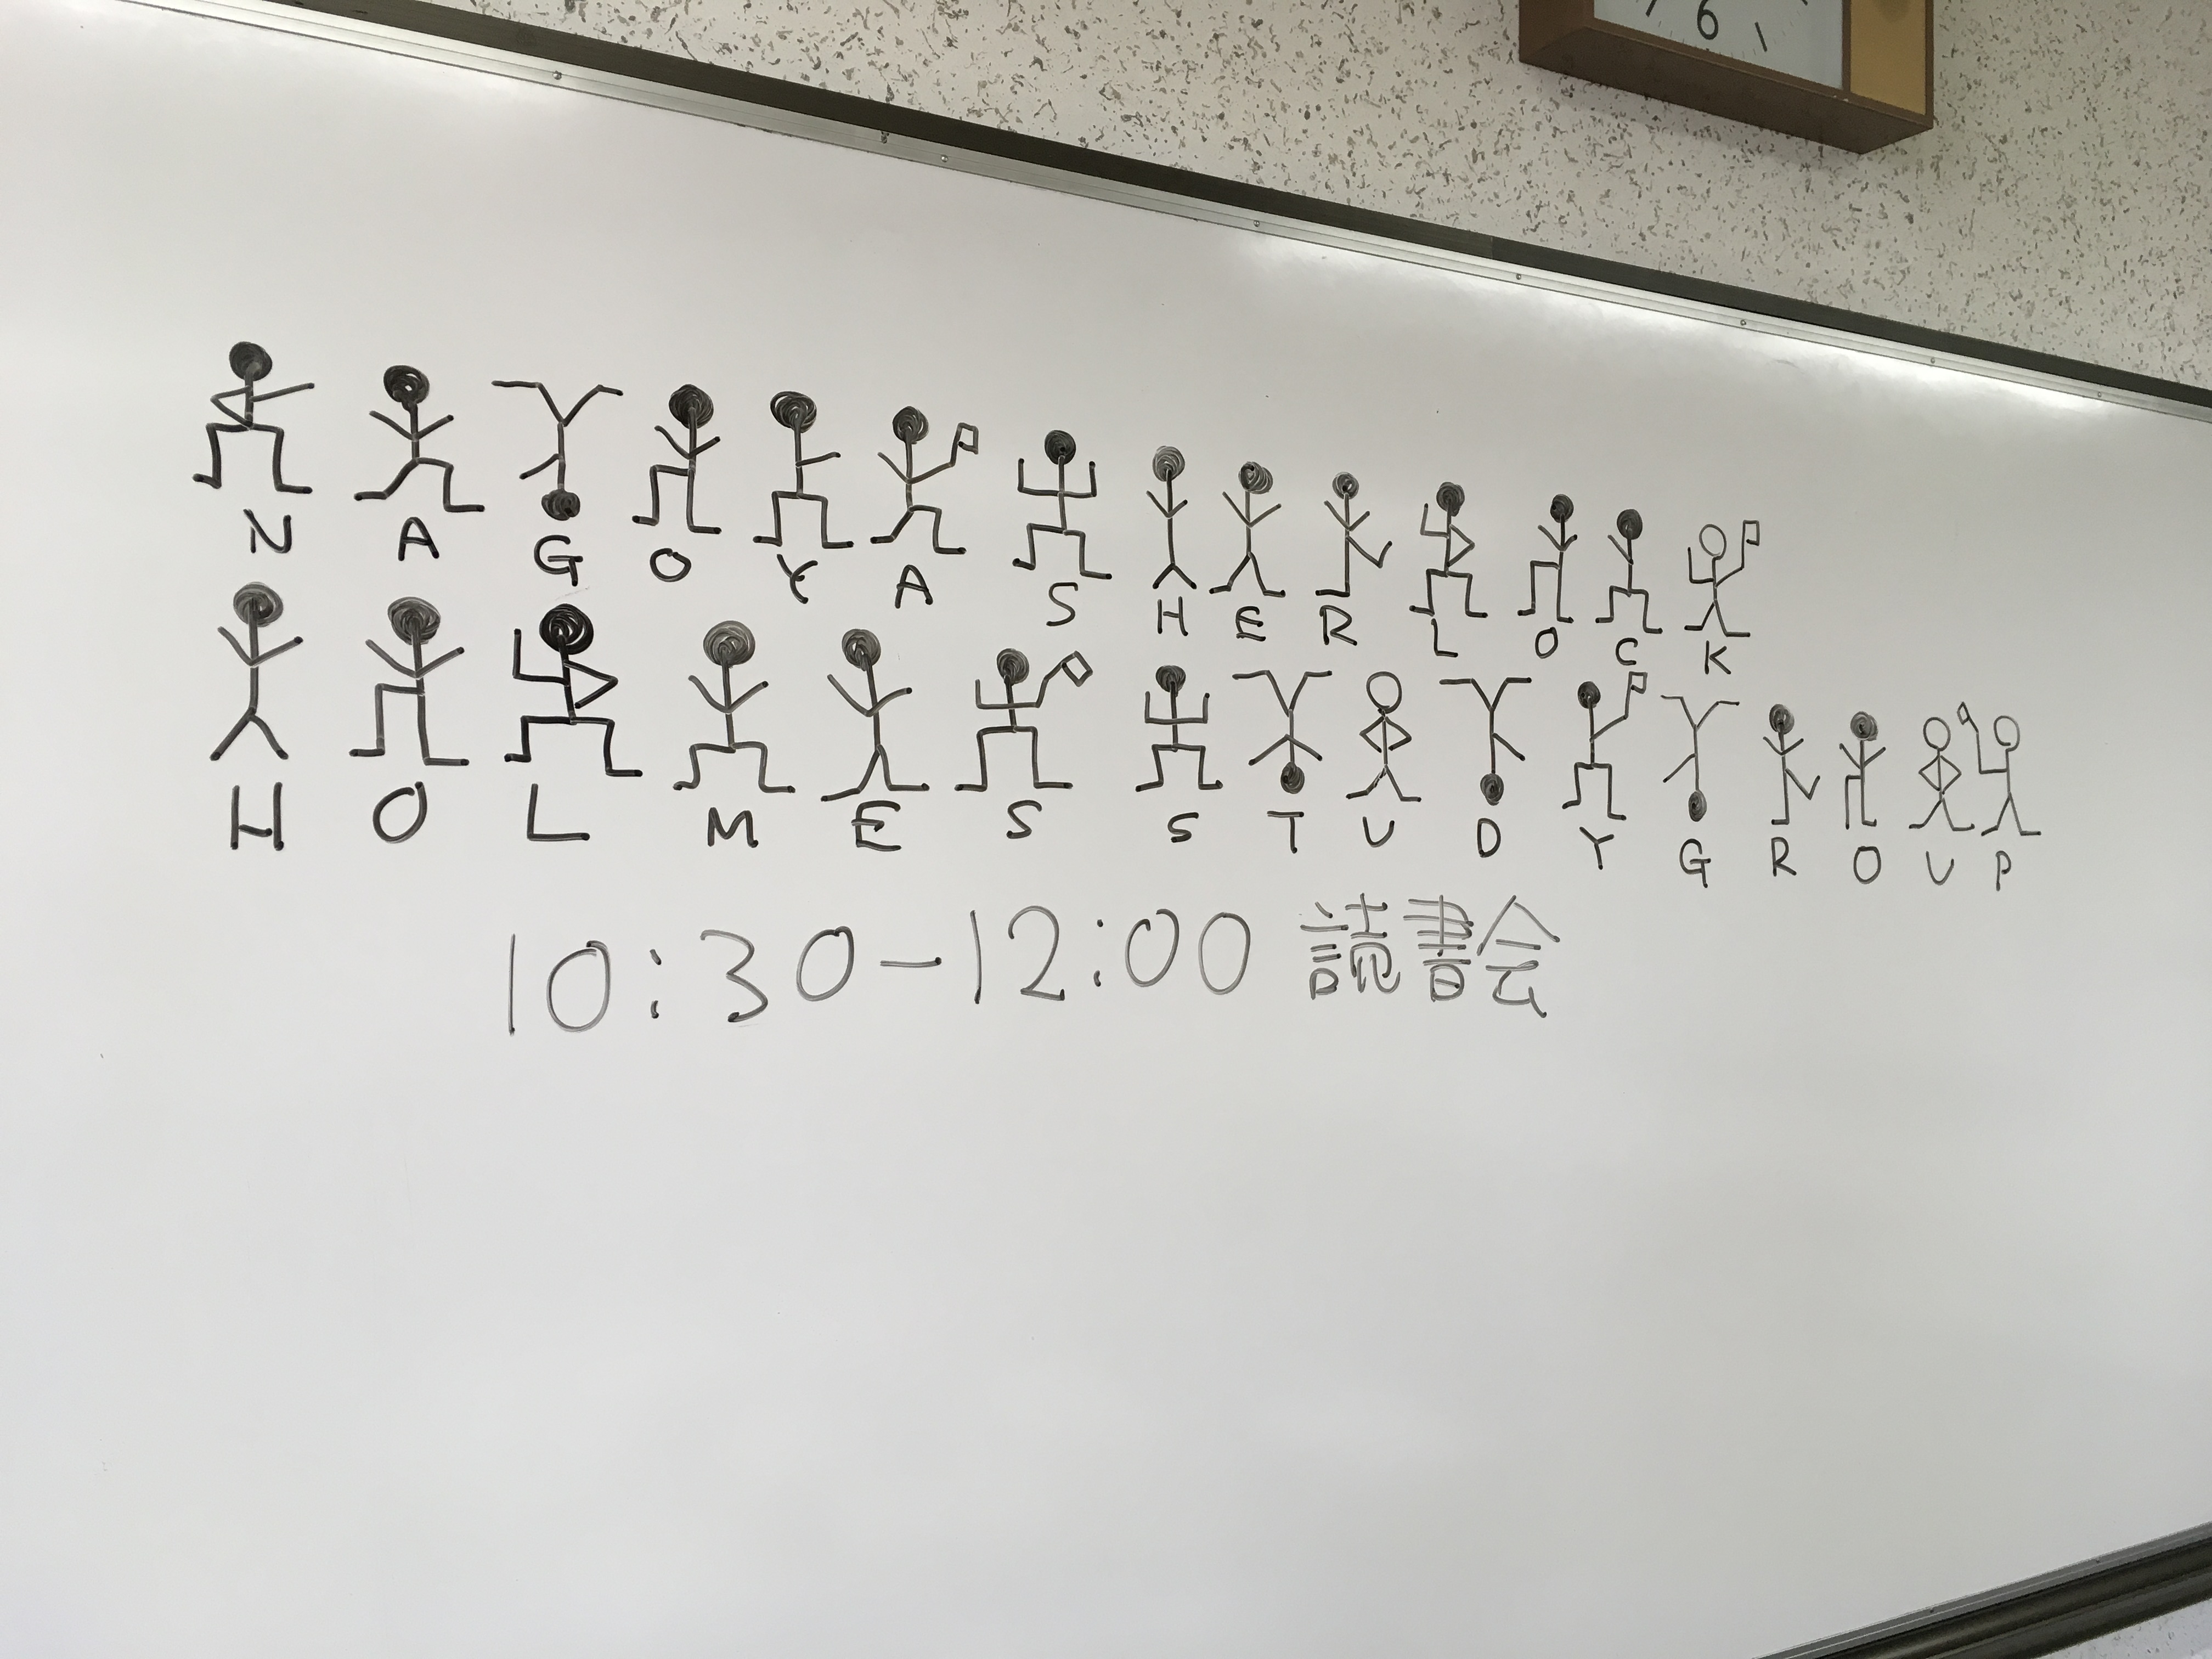 6
NAGOYA SHERLOCK
HOLMES STUDY GROUP
10:30-12:00 読書会